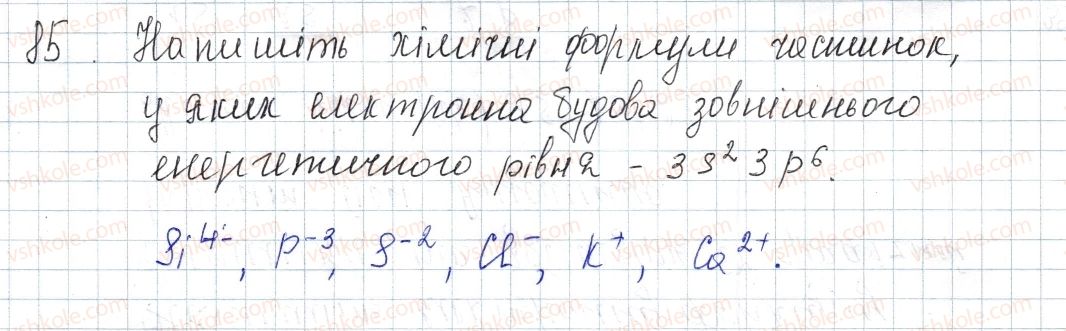 85. Напишіть хімічні формули частинок,
у яких електронна будова зовнішнього
енергетичного рівня - 3s² 3p⁶.
Si⁴⁻, P⁻³, S⁻², Cl⁻, K⁺, Ca²⁺.